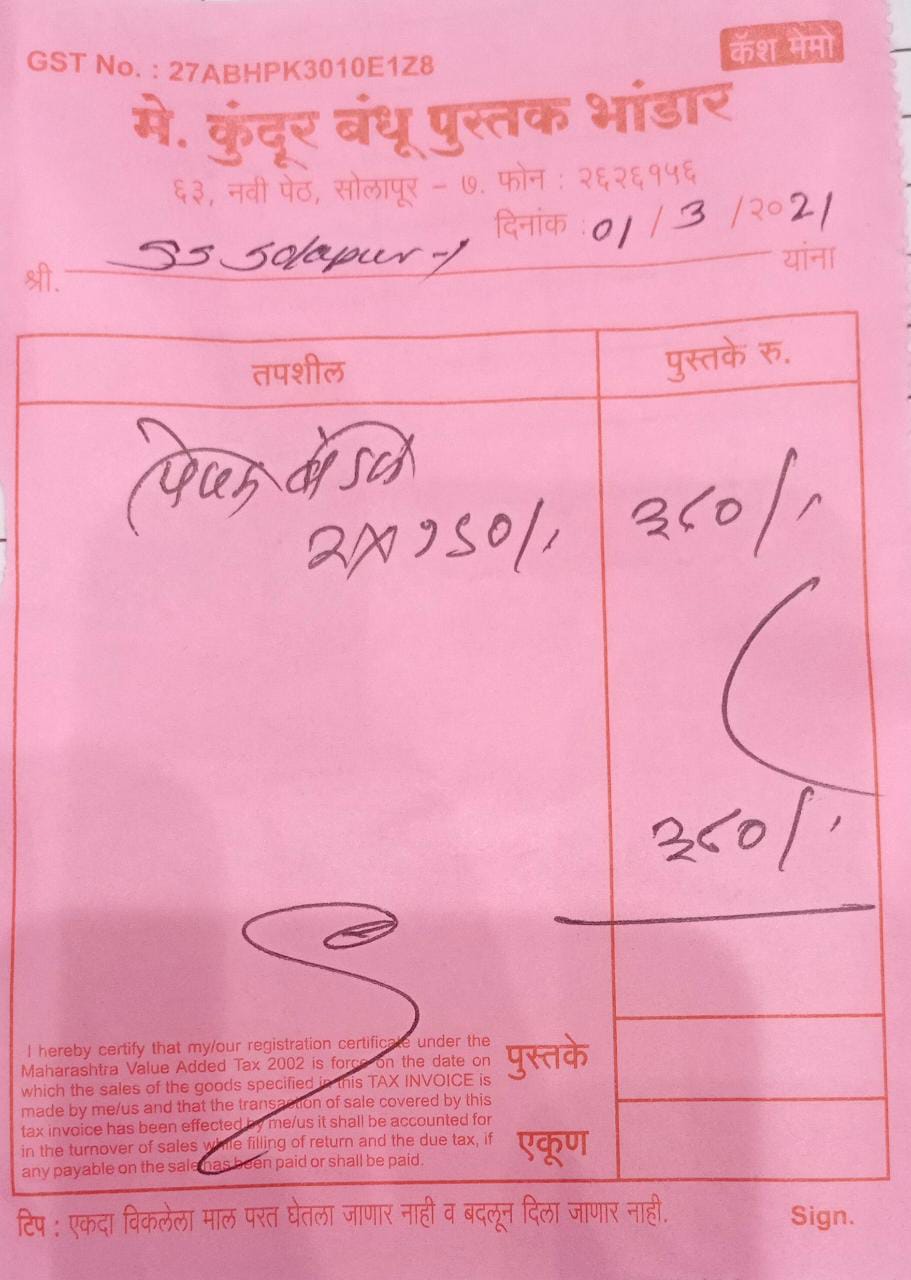 GST No. : 27ABHPK3010E1Z8
कॅश मेमो
मे. कुंदूर बंधू पुस्तक भांडार
६३, नवी पेठ, सोलापूर - ७. फोन : २६२६१५६
दिनांक : 01 / 3 / २०21
श्री. SS Solapur-1 यांना
तपशील पुस्तके रु.
२X१९०/- ३८०/-
३८०/-
I hereby certify that my/our registration certificate under the
Maharashtra Value Added Tax 2002 is force on the date on
which the sales of the goods specified in this TAX INVOICE is
made by me/us and that the transaction of sale covered by this
tax invoice has been effected by me/us it shall be accounted for
in the turnover of sales while filling of return and the due tax, if
any payable on the sale has been paid or shall be paid.
पुस्तके
एकूण
टिप : एकदा विकलेला माल परत घेतला जाणार नाही व बदलून दिला जाणार नाही. Sign.